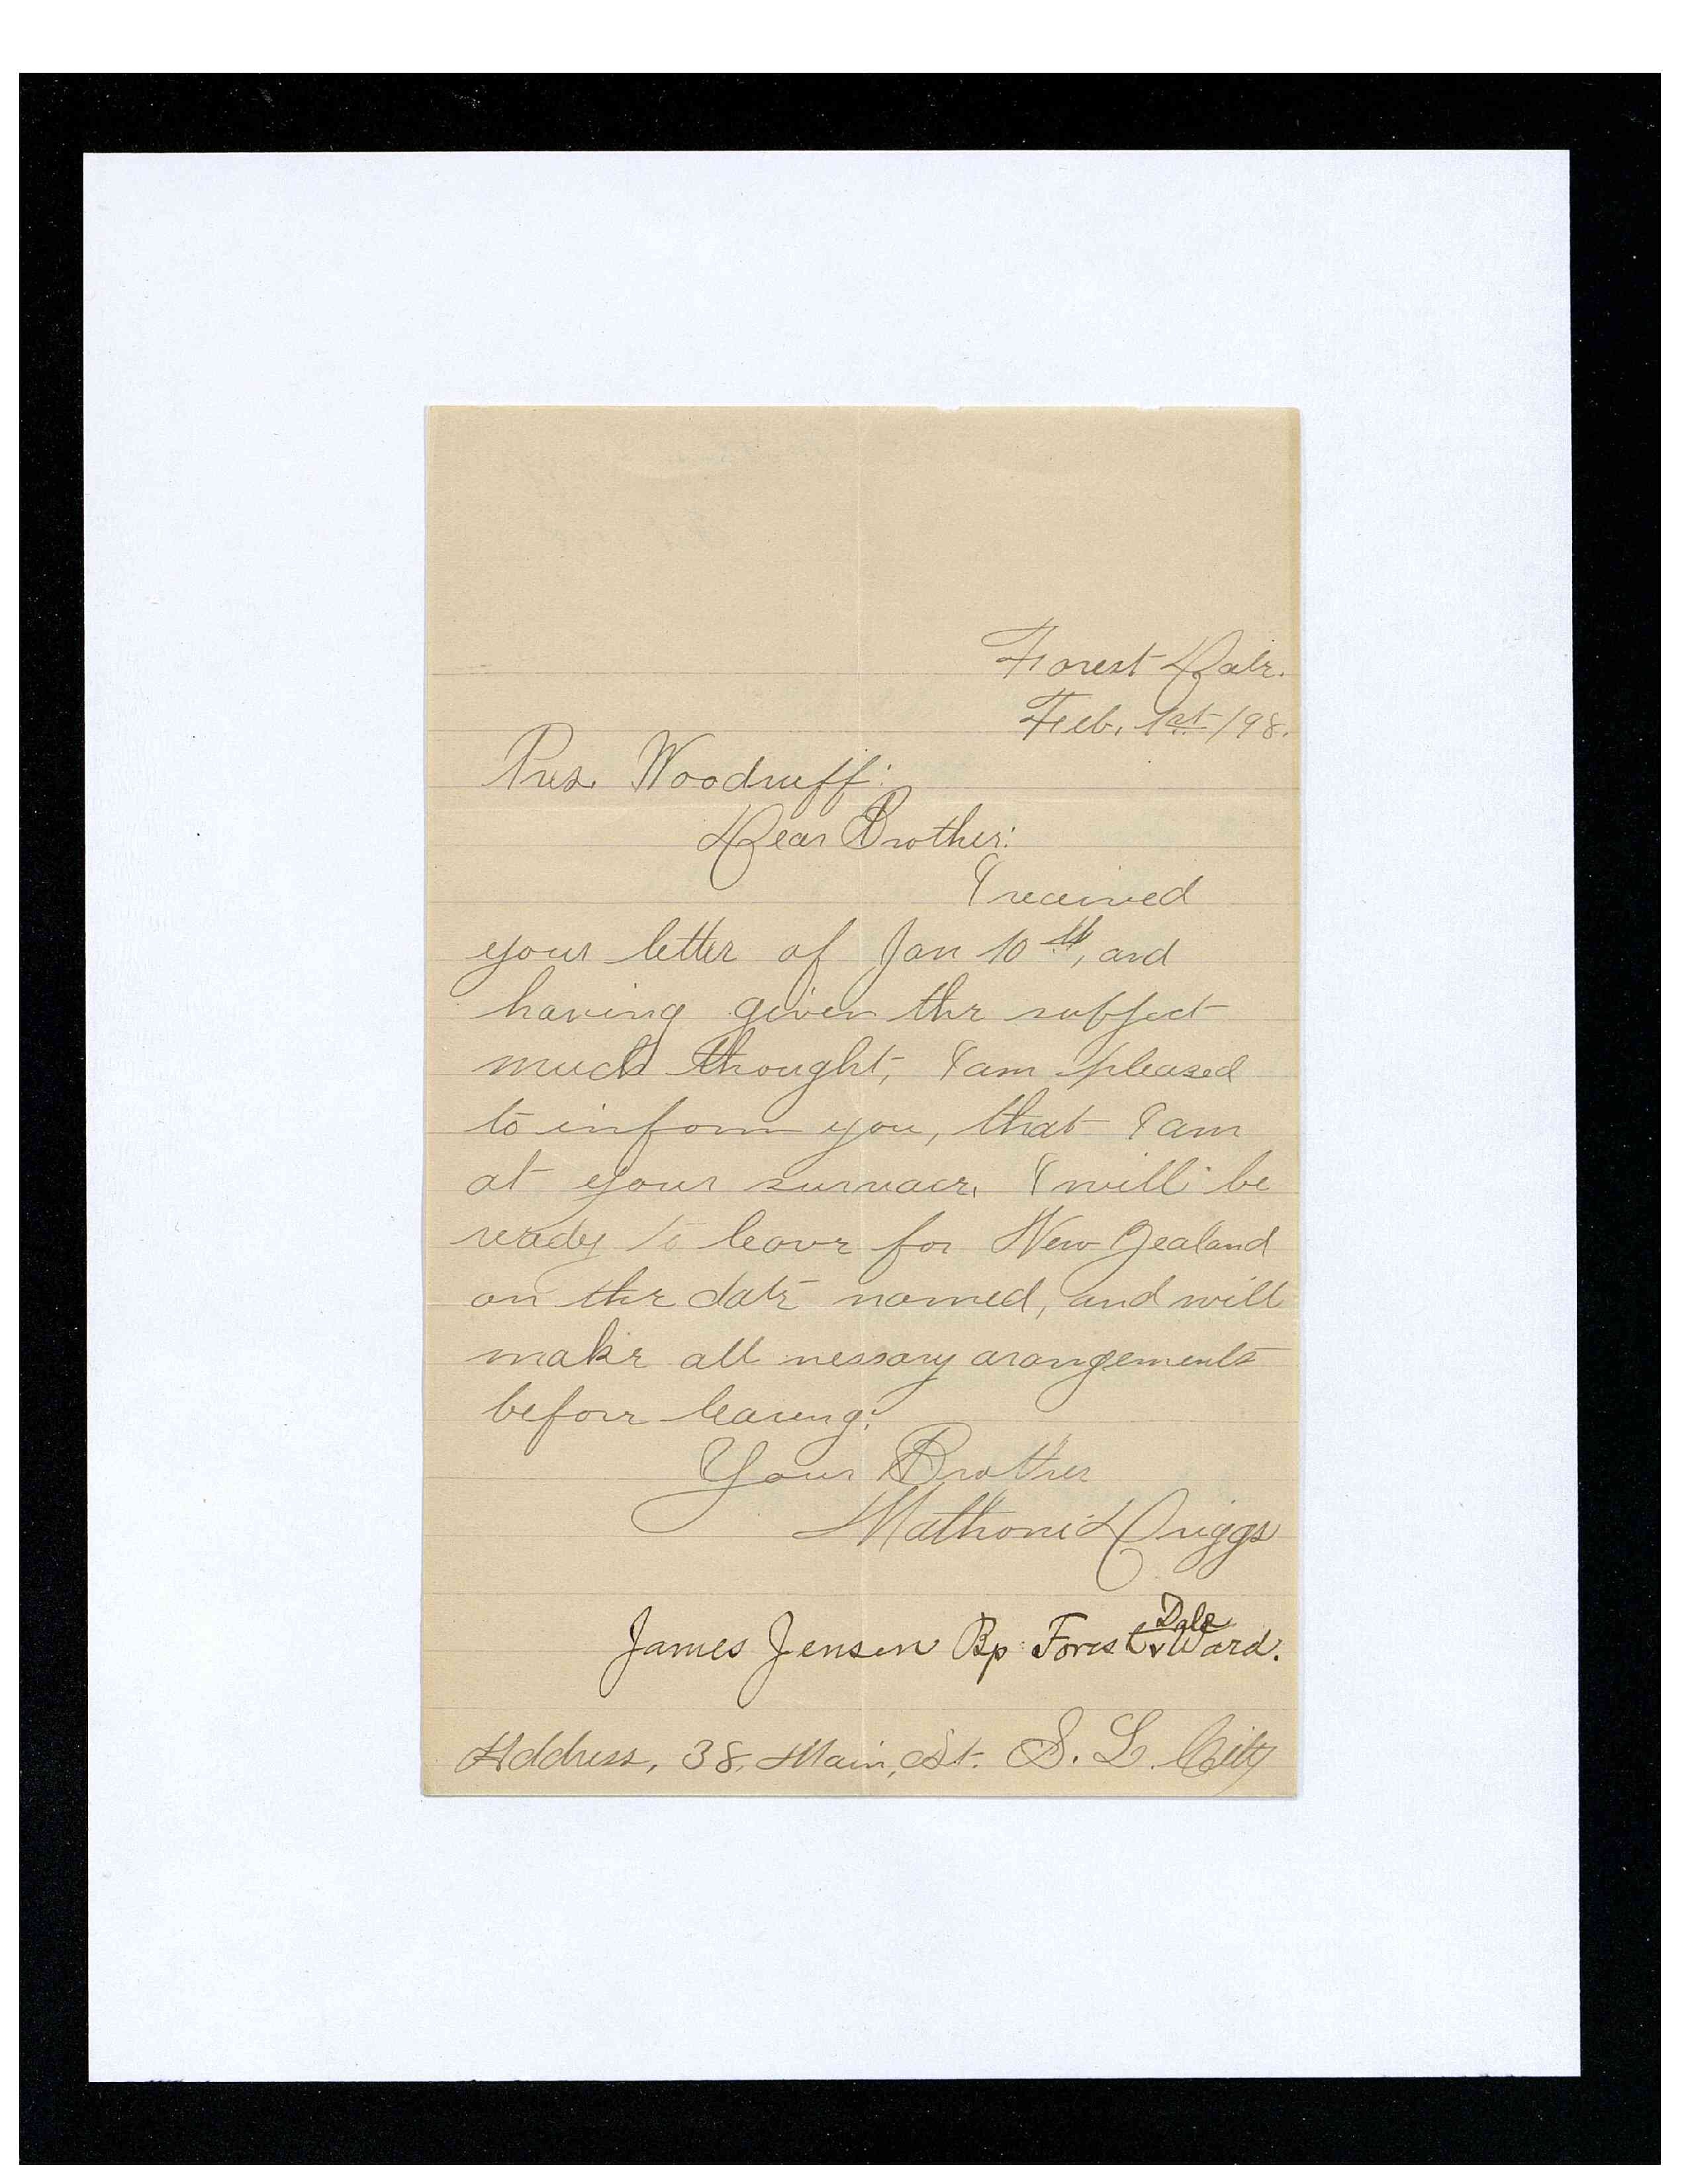 Forest Dale.
Feb. 1st /98.
Pres. Woodruff:
Dear Brother:
I received
your letter of Jan 10th, and
having given the subject
much thought, I am pleased
to inform you, that I am
at your survace. I will be
ready to leave for New Zealand
on the date named, and will
make all nessary arangements
before leaving.
Your Brother
Mathoni Driggs
James Jensen Bp Forest Dale Ward.
Address, 38, Main, St. S. L. City